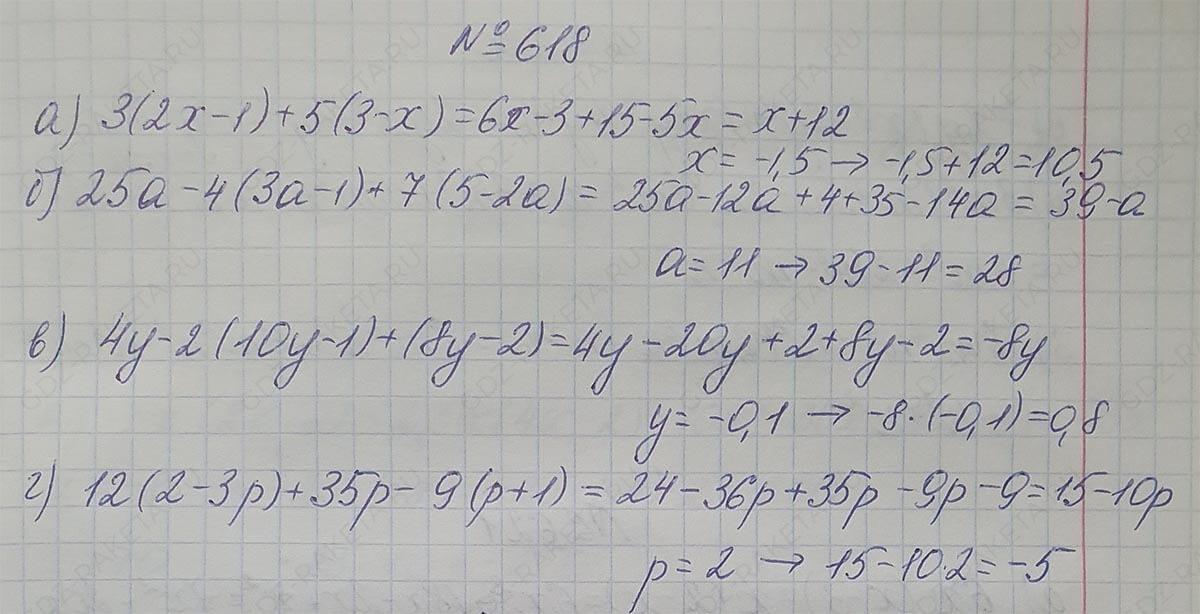 №618
а) 3(2x-1)+5(3-x)=6x-3+15-5x=x+12
x=-1,5→-1,5+12=10,5
б) 25a-4(3a-1)+7(5-2a)=25a-12a+4+35-14a=39-a
a=11→39-11=28
в) 4y-2(10y-1)+(8y-2)=4y-20y+2+8y-2=-8y
y=-0,1→-8·(-0,1)=0,8
г) 12(2-3p)+35p-9(p+1)=24-36p+35p-9p-9=15-10p
p=2→15-10·2=-5
GDZ-RAKETA.RU